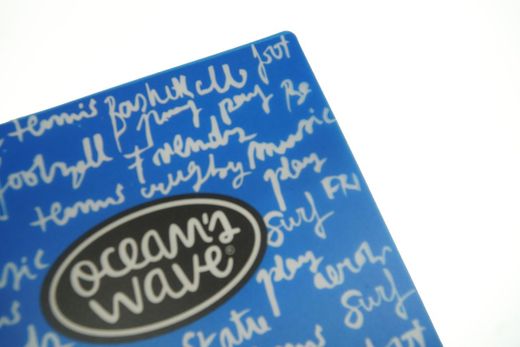 tennis Basketball foot
play play Be
football Friends music
tennis rugby play
sic Surf FRI
ocean's wave®
play aerob
Surf
Skate
oot